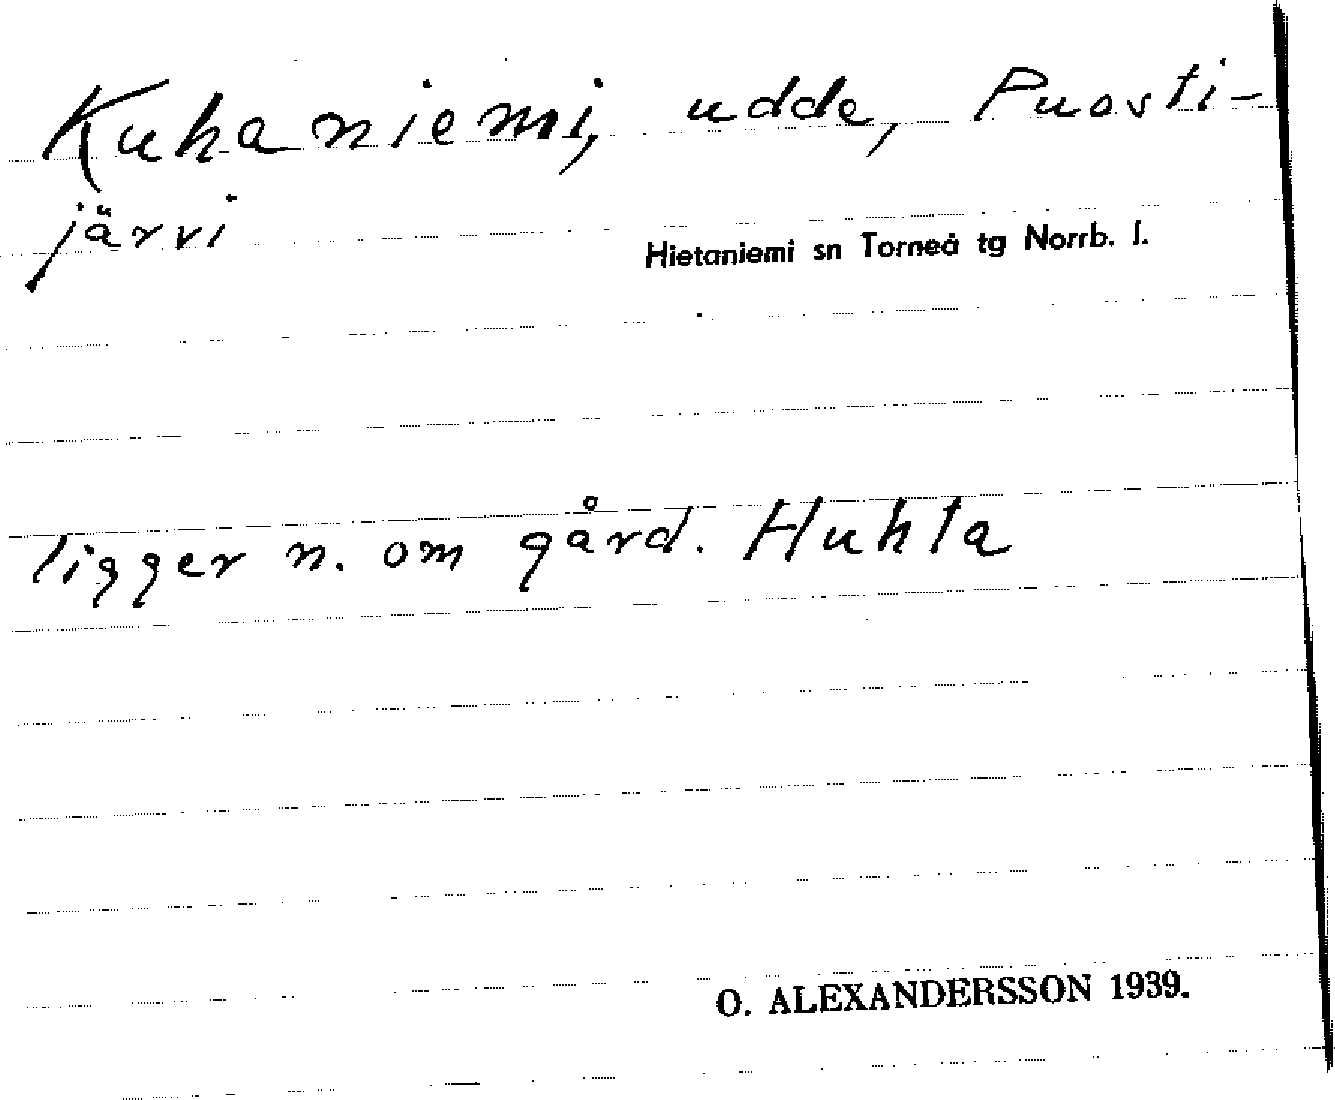 Kuhaniemi, udde, Puosti-
järvi
Hietaniemi sn Torneå tg Norrb. l.
ligger n. om gård. Huhta
O. ALEXANDERSSON 1939.